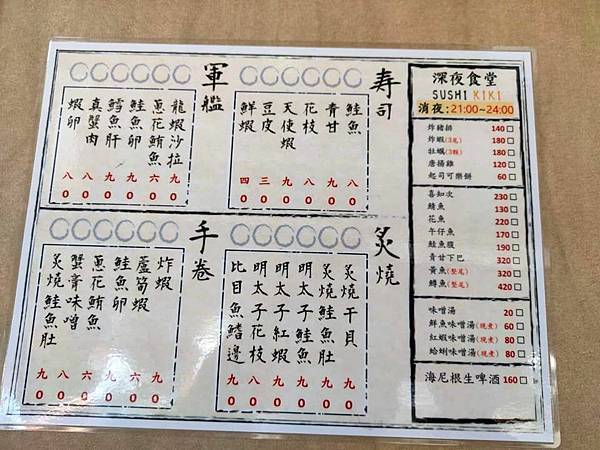 壽司
鮭魚 八〇
青甘 九〇
花枝 八〇
天使蝦 九〇
豆皮 三〇
鮮蝦 四〇
軍艦
龍蝦沙拉 九〇
蔥花鮪魚 六〇
鮭魚卵 九〇
鱈魚肝 九〇
真蟹肉 八〇
蝦卵 八〇
炙燒
炙燒干貝 九〇
炙燒鮭魚肚 九〇
明太子鮭魚 九〇
明太子紅蝦 八〇
明太子花枝 八〇
比目魚鰭邊 九〇
手卷
炸蝦
蘆筍蝦
鮭魚卵
蔥花鮪魚
蟹膏味噌
炙燒鮭魚肚
九〇
六〇
九〇
六〇
八〇
九〇
深夜食堂
SUSHI KIKI
消夜:21:00~24:00
炸豬排 140
炸蝦(3尾) 180
牡蠣(3顆) 180
唐揚雞 120
起司可樂餅 60
喜知次 230
鯖魚 130
花魚 220
午仔魚 170
鮭魚腹 190
青甘下巴 320
黃魚(整尾) 320
鱒魚(整尾) 420
味噌湯 20
鮮魚味噌湯(現煮) 60
紅蝦味噌湯(現煮) 80
蛤蜊味噌湯(現煮) 80
海尼根生啤酒 160